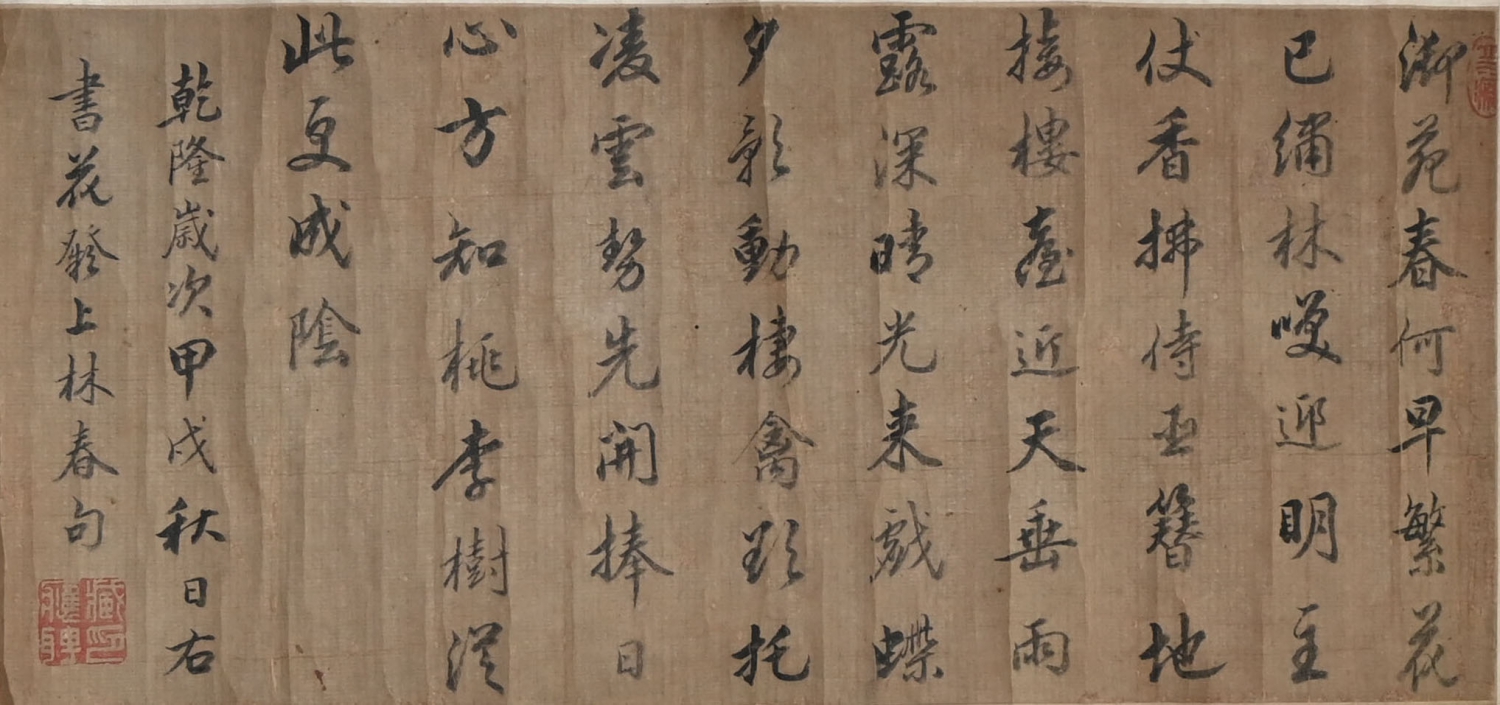 御苑春何早繁花
已繡林嘆迎明主
仗香拂侍臣簪地
接樓臺近天垂雨
露深晴光來戲蝶
夕影動棲禽欲托
凌雲勢先開捧日
心方知桃李樹從
此更成陰
乾隆歲次甲戌秋日右
書花發上林春句